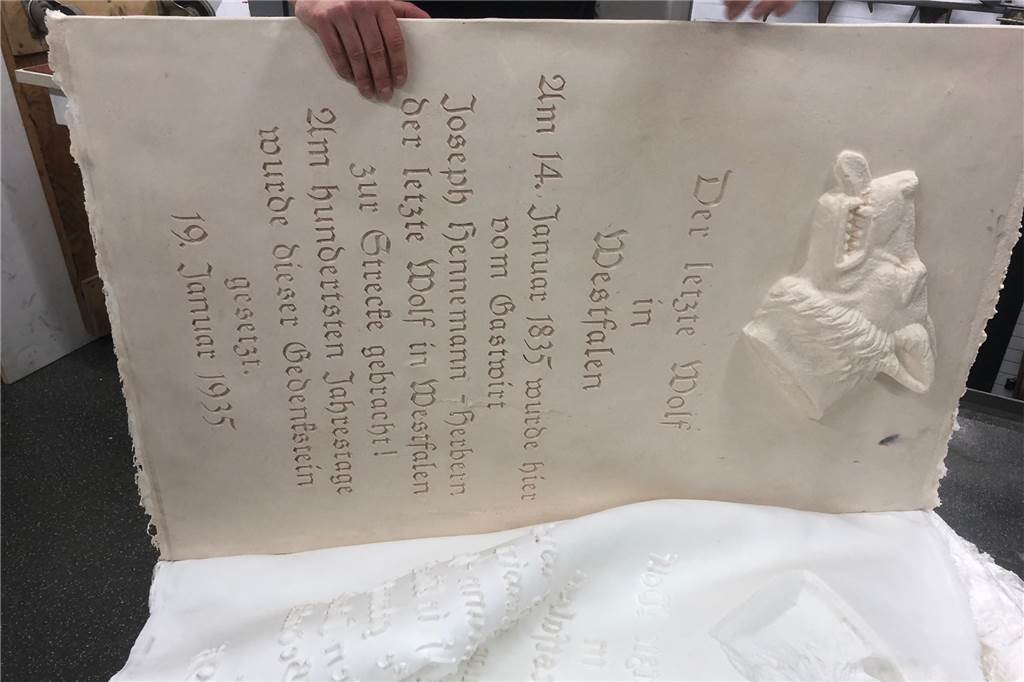 Der letzte Wolf
in
Westfalen
Am 14. Januar 1835 wurde hier
vom Gastwirt
Joseph Hennemann-Herbern
der letzte Wolf in Westfalen
zur Strecke gebracht!
Am hundertsten Jahrestage
wurde dieser Gedenkstein
gesetzt.
19. Januar 1935